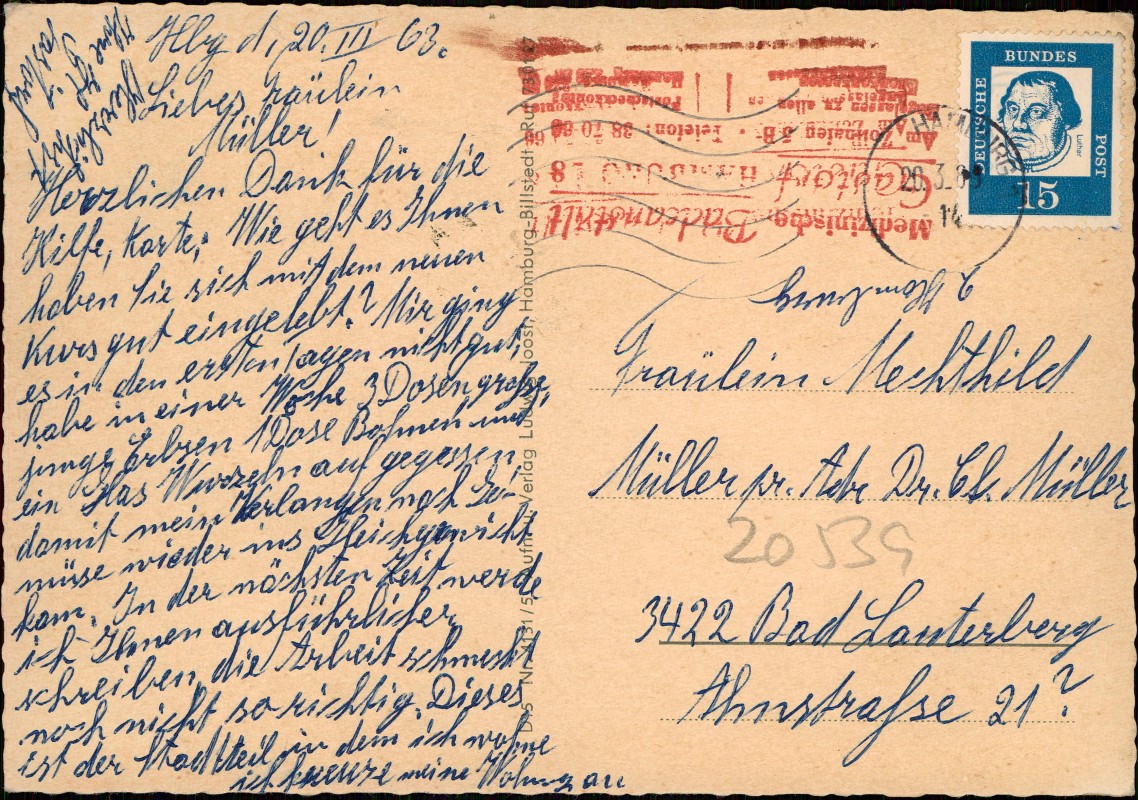 Hbg d, 20. III 63.
Liebes Fräulein
Müller!
Herzlichen Dank für die
Hilfe, Karte, Wie geht es Ihnen
haben Sie sich mit dem neuen
Kurs gut eingelebt? Mir ging
es in den ersten Tagen nicht gut,
habe in einer Woche 3 Dosen große,
junge Erbsen 1 Dose Bohnen und
ein Glas Wurzeln auf gegessen,
damit mein Verlangen nach Ge-
müse wieder ins Gleichgewicht
kam. In der nächsten Zeit werde
ich Ihnen ausführlicher
schreiben, die Arbeit schmeckt
noch nicht so richtig. Dieses
ist der Stadtteil in dem ich wohne
ich kreuze meine Wohnung an
Herzlichst
Ihre
Verlag Ludwig Joost, Hamburg-Billstedt · Ruf
Medizinische Badeanstalt
Castorf HAMBURG 48
Telefon: 38 70 60
Postscheckkonto
Hamburg
HAMBURG
20.3.63
DEUTSCHE
BUNDES
POST
Luther
15
Fräulein Mechthild
Müller pr. Adr. Dr. Cl. Müller
20 539
3422 Bad Lauterberg
Ahnstraße 21?